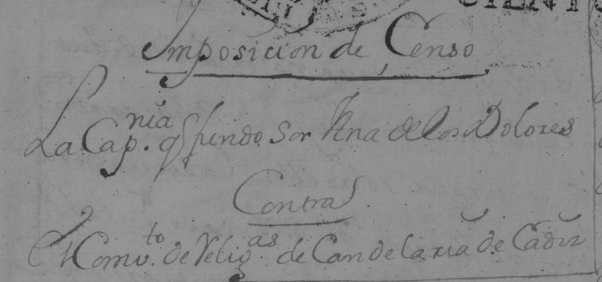 CIENTO
Imposicion de Censo
La Cap.nia q fundo Sor Ana de los Dolores
Contra
El Conv.to de Relig.as de Candelaria de Cadiz